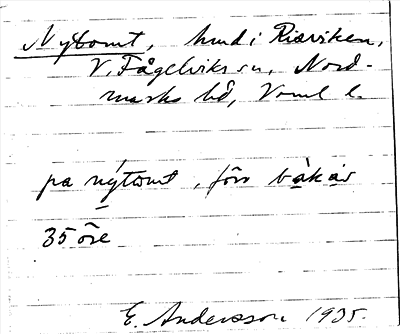 Nytomt, hmd i Risviken,
V. Fågelviks sn, Nord-
marks hd, Vrml l.
pa nýtomt, för bakar
35 öre
E. Andersson 1935.